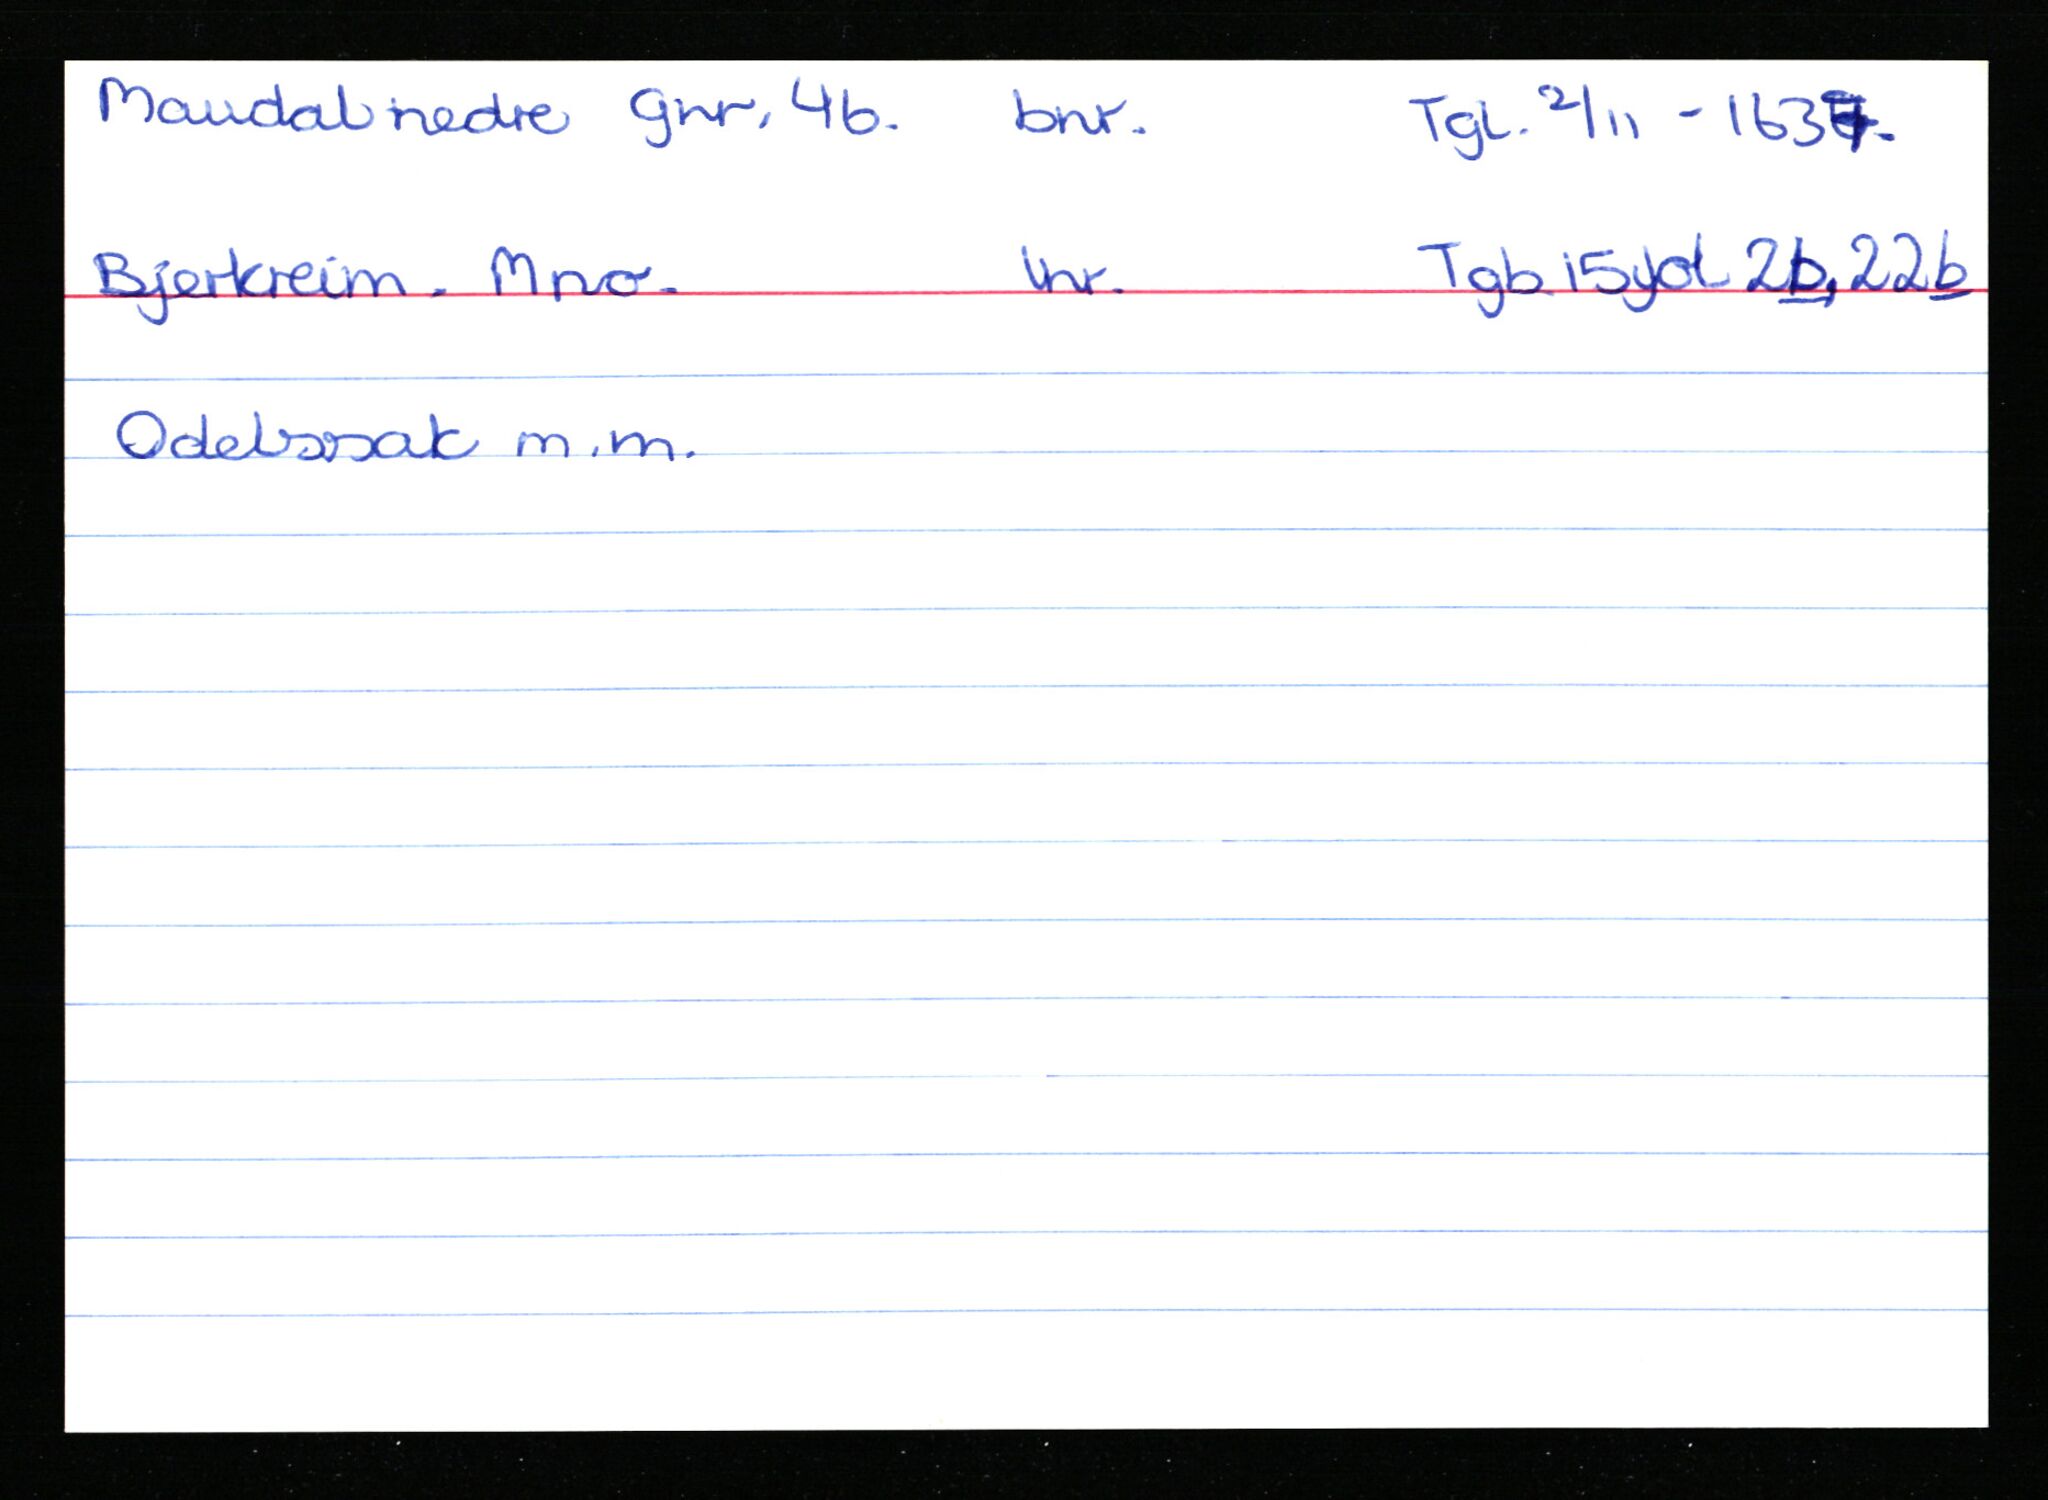 Maudal nedre gnr, 46. bnr. Tgl. 2/11 - 1637.
Bjerkreim. Mno. lnr. Tgb 15yol 2b, 22b
Odelssak m.m.